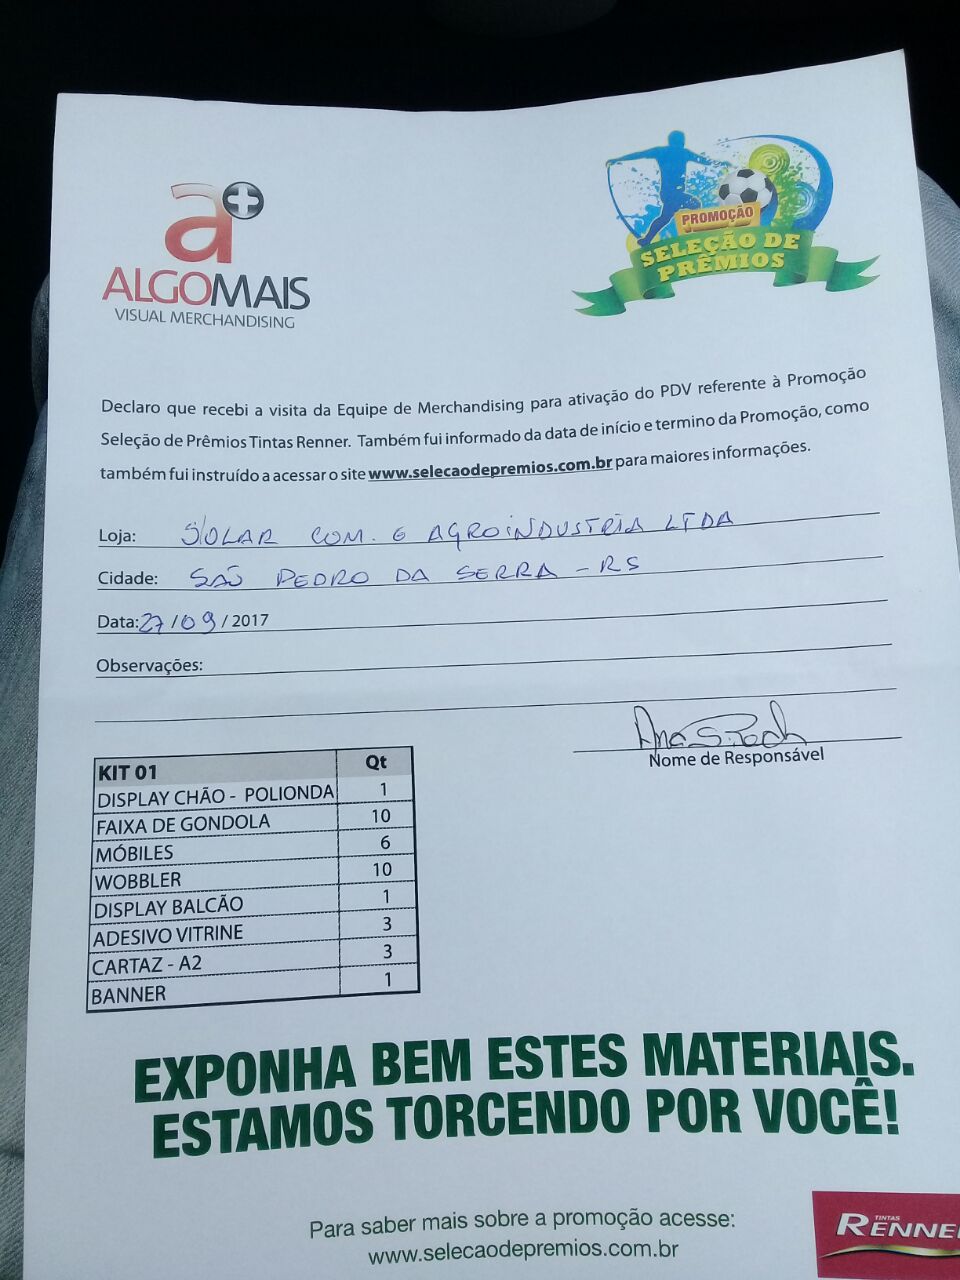 a+
ALGOMAIS
VISUAL MERCHANDISING
PROMOÇÃO
SELEÇÃO DE
PRÊMIOS
Declaro que recebi a visita da Equipe de Merchandising para ativação do PDV referente à Promoção
Seleção de Prêmios Tintas Renner. Também fui informado da data de início e termino da Promoção, como
também fui instruído a acessar o site www.selecaodepremios.com.br para maiores informações.
Loja: SOLAR COM. E AGROINDUSTRIA LTDA
Cidade: SAÕ PEDRO DA SERRA - RS
Data: 27 / 09 / 2017
Observações:
Ana S.
Nome de Responsável
KIT 01 Qt
DISPLAY CHÃO - POLIONDA 1
FAIXA DE GONDOLA 10
MÓBILES 6
WOBBLER 10
DISPLAY BALCÃO 1
ADESIVO VITRINE 3
CARTAZ - A2 3
BANNER 1
EXPONHA BEM ESTES MATERIAIS.
ESTAMOS TORCENDO POR VOCÊ!
Para saber mais sobre a promoção acesse:
www.selecaodepremios.com.br
TINTAS
RENNE